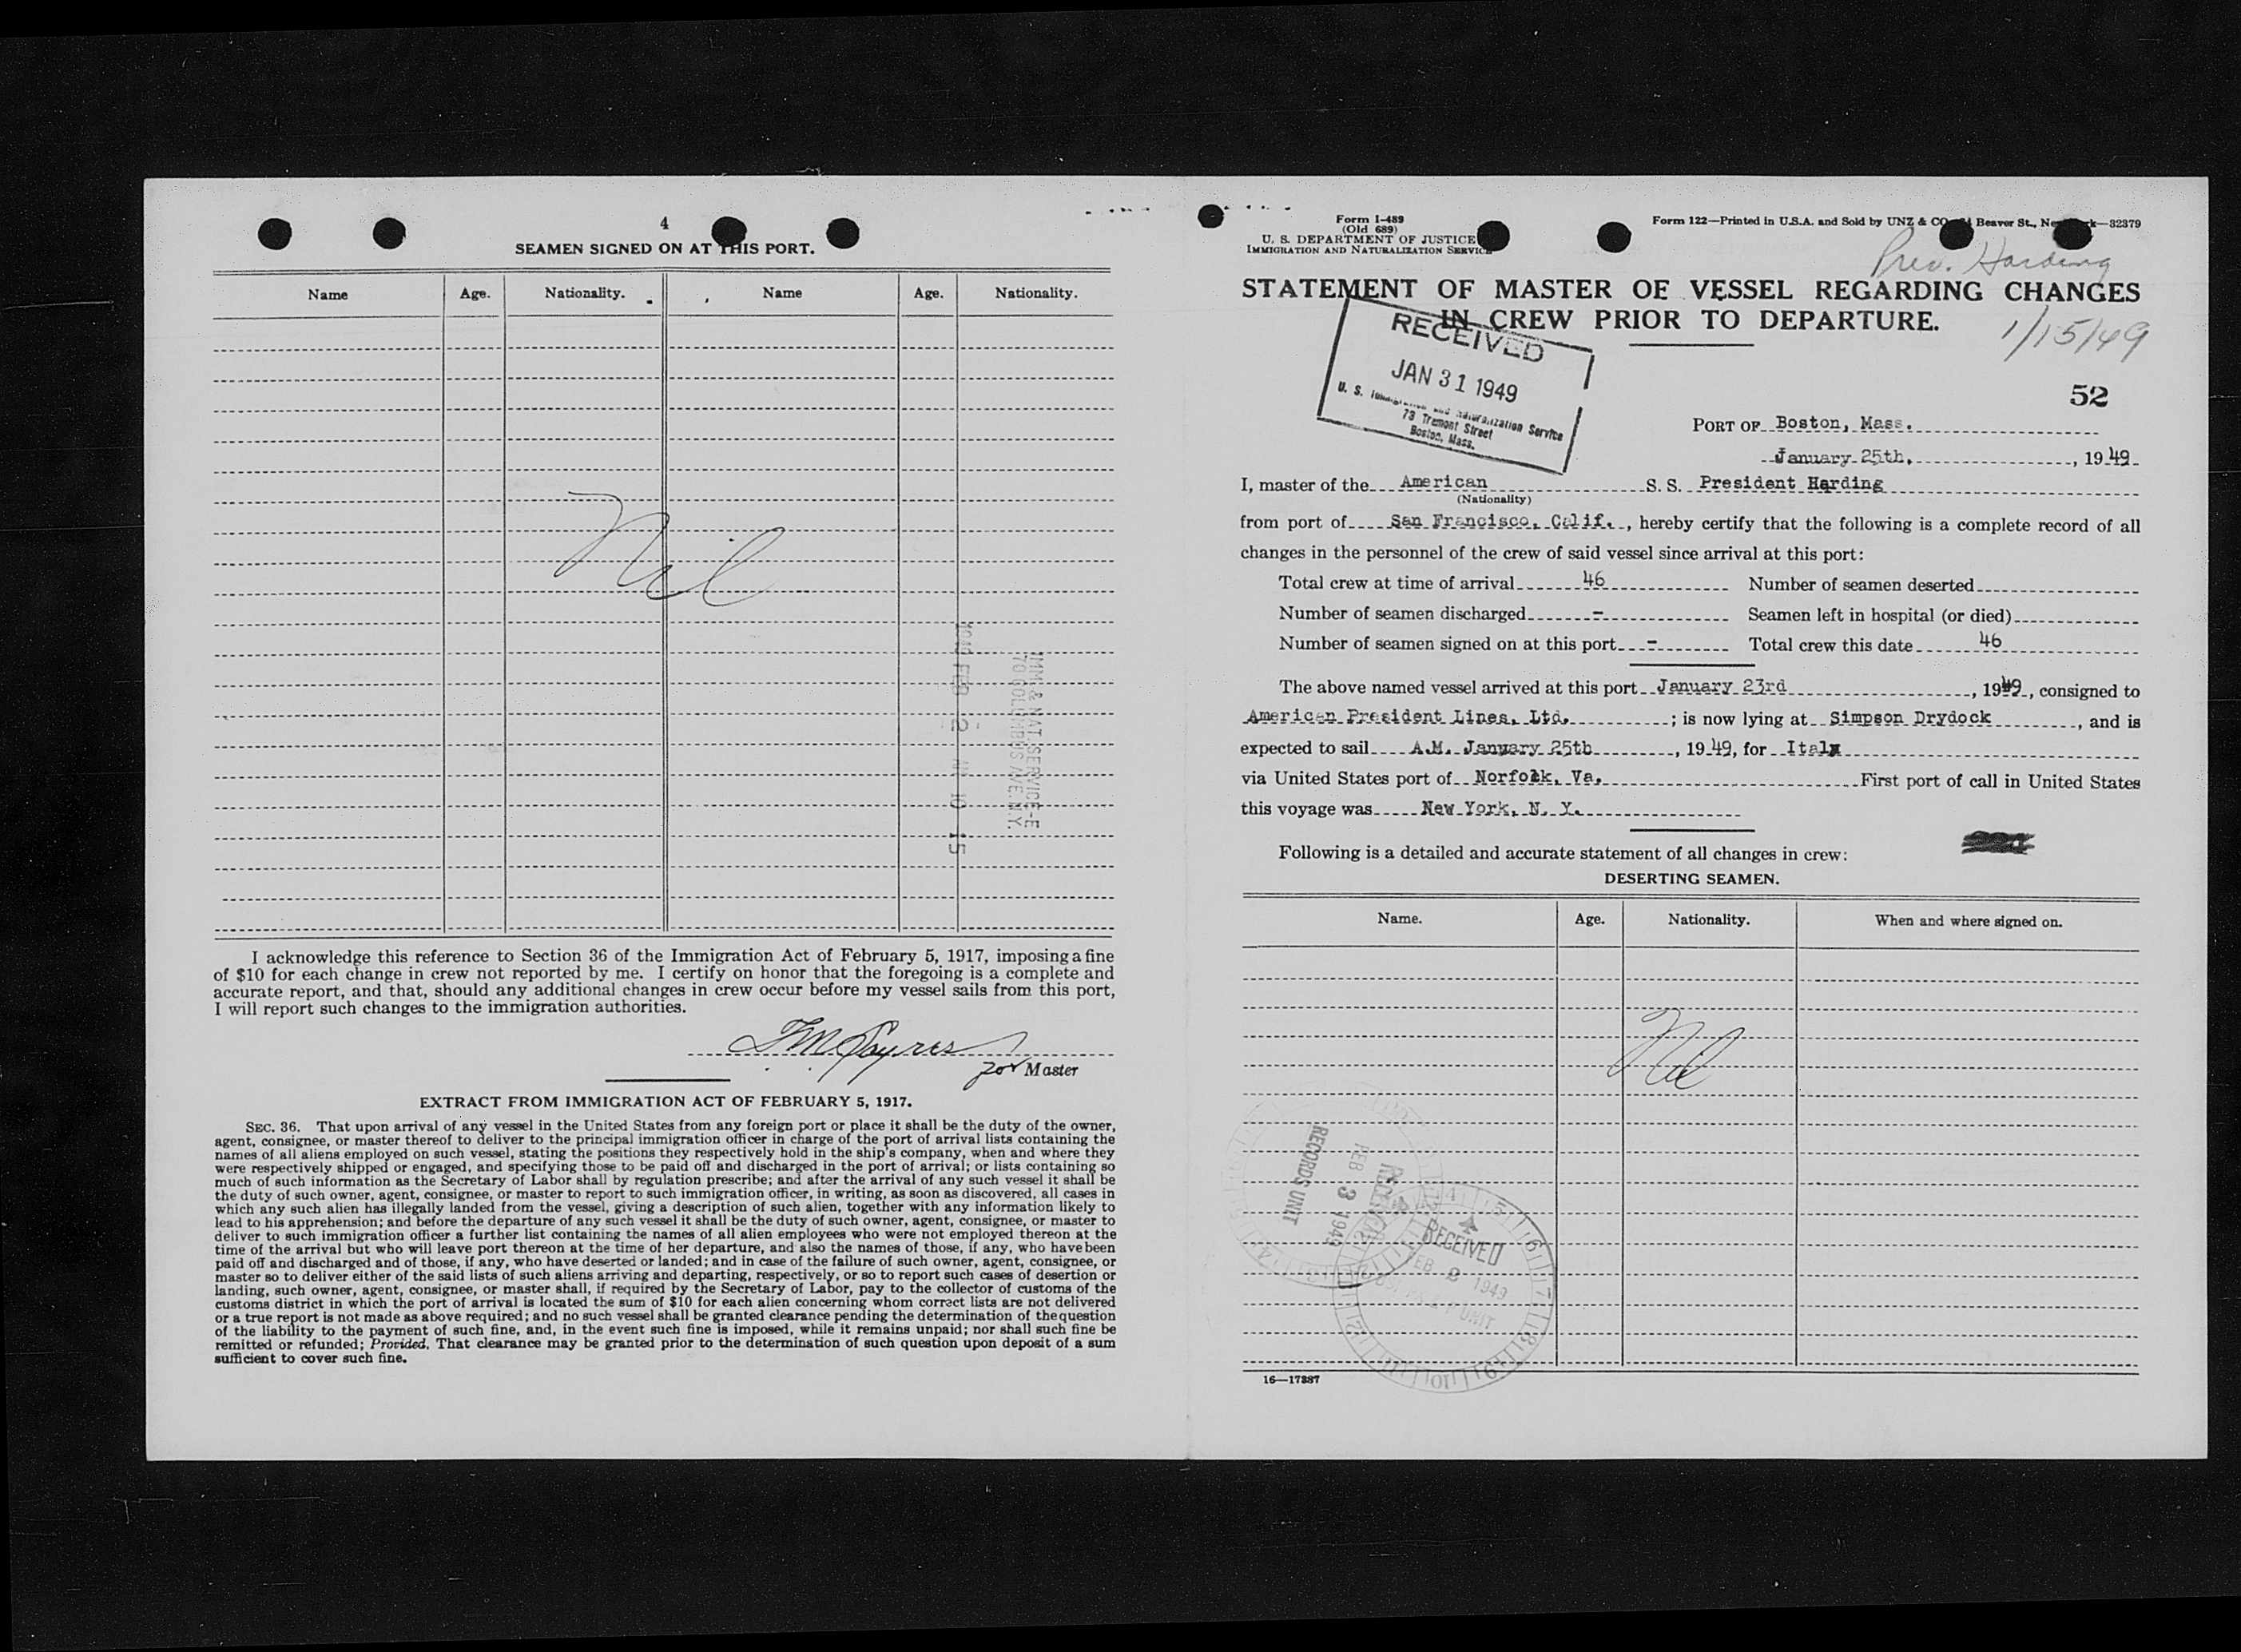 4
SEAMEN SIGNED ON AT THIS PORT.
Name Age. Nationality. Name Age. Nationality.
Nil
IMM. & NAT. SERVICE-E
70 COLUMBUS AVE. N.Y.
1949 FEB 2 AM 10 15
I acknowledge this reference to Section 36 of the Immigration Act of February 5, 1917, imposing a fine
of $10 for each change in crew not reported by me. I certify on honor that the foregoing is a complete and
accurate report, and that, should any additional changes in crew occur before my vessel sails from this port,
I will report such changes to the immigration authorities.
for Master
EXTRACT FROM IMMIGRATION ACT OF FEBRUARY 5, 1917.
SEC. 36. That upon arrival of any vessel in the United States from any foreign port or place it shall be the duty of the owner,
agent, consignee, or master thereof to deliver to the principal immigration officer in charge of the port of arrival lists containing the
names of all aliens employed on such vessel, stating the positions they respectively hold in the ship's company, when and where they
were respectively shipped or engaged, and specifying those to be paid off and discharged in the port of arrival; or lists containing so
much of such information as the Secretary of Labor shall by regulation prescribe; and after the arrival of any such vessel it shall be
the duty of such owner, agent, consignee, or master to report to such immigration officer, in writing, as soon as discovered, all cases in
which any such alien has illegally landed from the vessel, giving a description of such alien, together with any information likely to
lead to his apprehension; and before the departure of any such vessel it shall be the duty of such owner, agent, consignee, or master to
deliver to such immigration officer a further list containing the names of all alien employees who were not employed thereon at the
time of the arrival but who will leave port thereon at the time of her departure, and also the names of those, if any, who have been
paid off and discharged and of those, if any, who have deserted or landed; and in case of the failure of such owner, agent, consignee, or
master so to deliver either of the said lists of such aliens arriving and departing, respectively, or so to report such cases of desertion or
landing, such owner, agent, consignee, or master shall, if required by the Secretary of Labor, pay to the collector of customs of the
customs district in which the port of arrival is located the sum of $10 for each alien concerning whom correct lists are not delivered
or a true report is not made as above required; and no such vessel shall be granted clearance pending the determination of the question
of the liability to the payment of such fine, and, in the event such fine is imposed, while it remains unpaid; nor shall such fine be
remitted or refunded; Provided, That clearance may be granted prior to the determination of such question upon deposit of a sum
sufficient to cover such fine.
Form I-489
(Old 689)
U. S. DEPARTMENT OF JUSTICE
IMMIGRATION AND NATURALIZATION SERVICE
Form 122—Printed in U.S.A. and Sold by UNZ & CO Beaver St., New York—32379
Pres. Harding
STATEMENT OF MASTER OF VESSEL REGARDING CHANGES
IN CREW PRIOR TO DEPARTURE.
1/15/49
RECEIVED
JAN 31 1949
U. S. Immigration and Naturalization Service
73 Tremont Street
Boston, Mass.
52
PORT OF Boston, Mass.
January 25th, , 1949
I, master of the American S. S. President Harding
(Nationality)
from port of San Francisco, Calif. , hereby certify that the following is a complete record of all
changes in the personnel of the crew of said vessel since arrival at this port:
Total crew at time of arrival 46 Number of seamen deserted
Number of seamen discharged - Seamen left in hospital (or died)
Number of seamen signed on at this port - Total crew this date 46
The above named vessel arrived at this port January 23rd , 1949, consigned to
American President Lines, Ltd. ; is now lying at Simpson Drydock , and is
expected to sail A.M. January 25th , 1949, for Italy
via United States port of Norfolk, Va. First port of call in United States
this voyage was New York, N. Y.
Following is a detailed and accurate statement of all changes in crew:
DESERTING SEAMEN.
Name. Age. Nationality. When and where signed on.
Nil
RECEIVED
FEB 3 1949
RECORDS UNIT
RECEIVED
FEB 2 1949
UNIT
16—17887